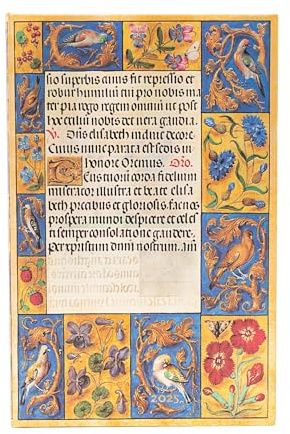 sio superbis cuius fit repressio et
robur humilium cui pro nobis ma
ter pia rogo regem omnium ut post
hoc exilium nobis det vera gaudia
V. Dñs elisabeth induit decore.
Cuius nunc parata est sedis in
honore Oremus. Oro.
Tuorum corda fidelium
miserator illustra et beate elisa
beth precibus et gloriosis, fac nos
prospera mundi despicere et celes
ti semper consolatione gaudere.
Per xpristum dnm nostrum. am
2025